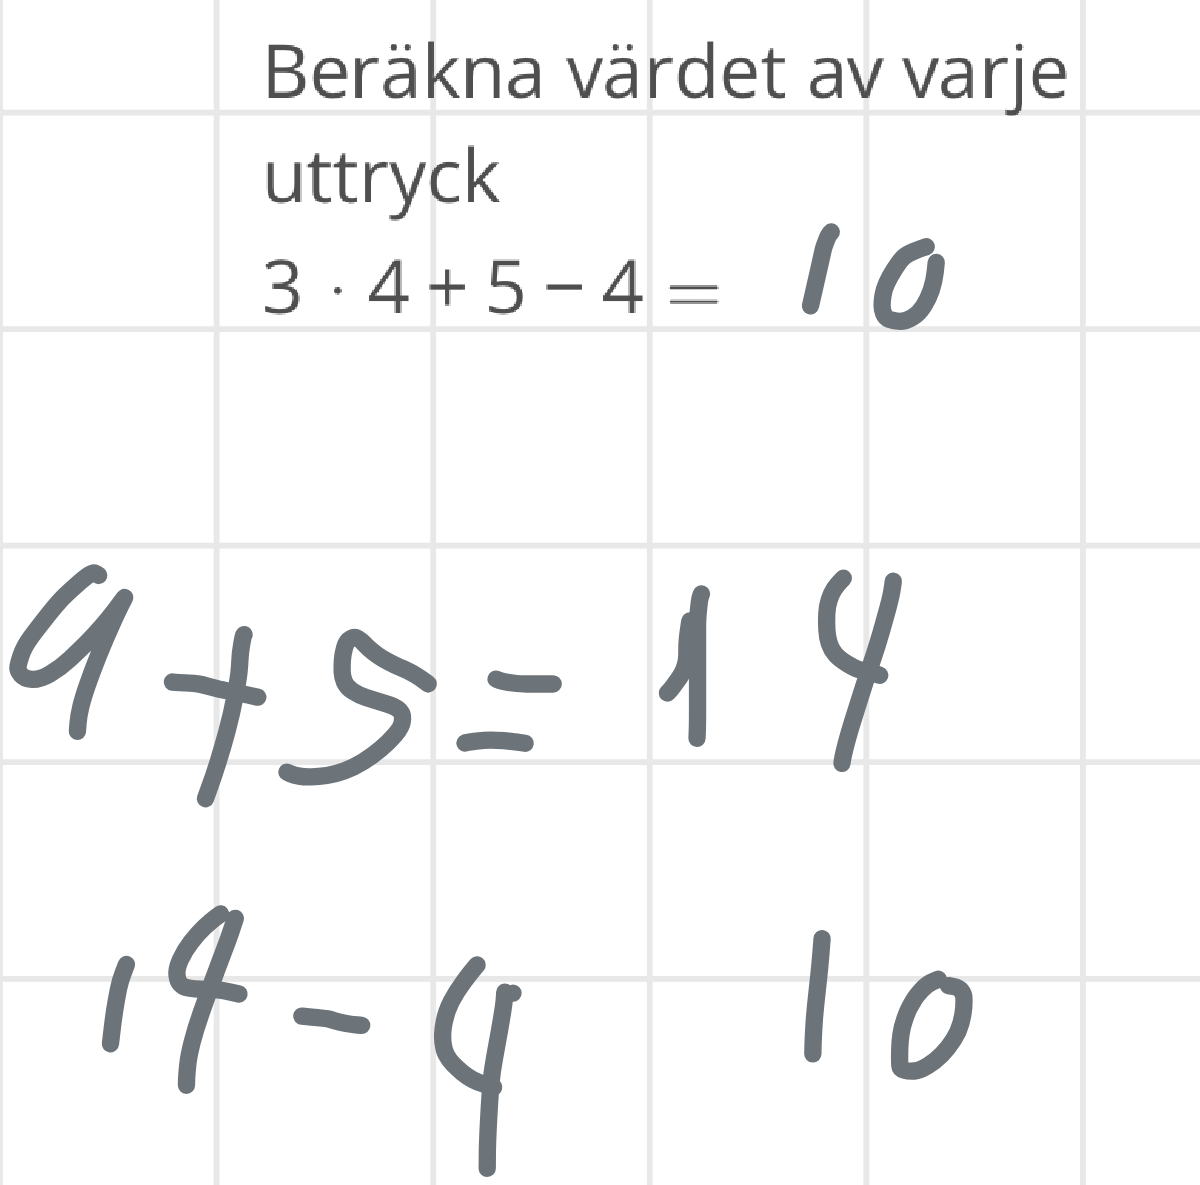 Beräkna värdet av varje
uttryck
3 · 4 + 5 − 4 = 10
9 + 5 = 14
14 − 4 10